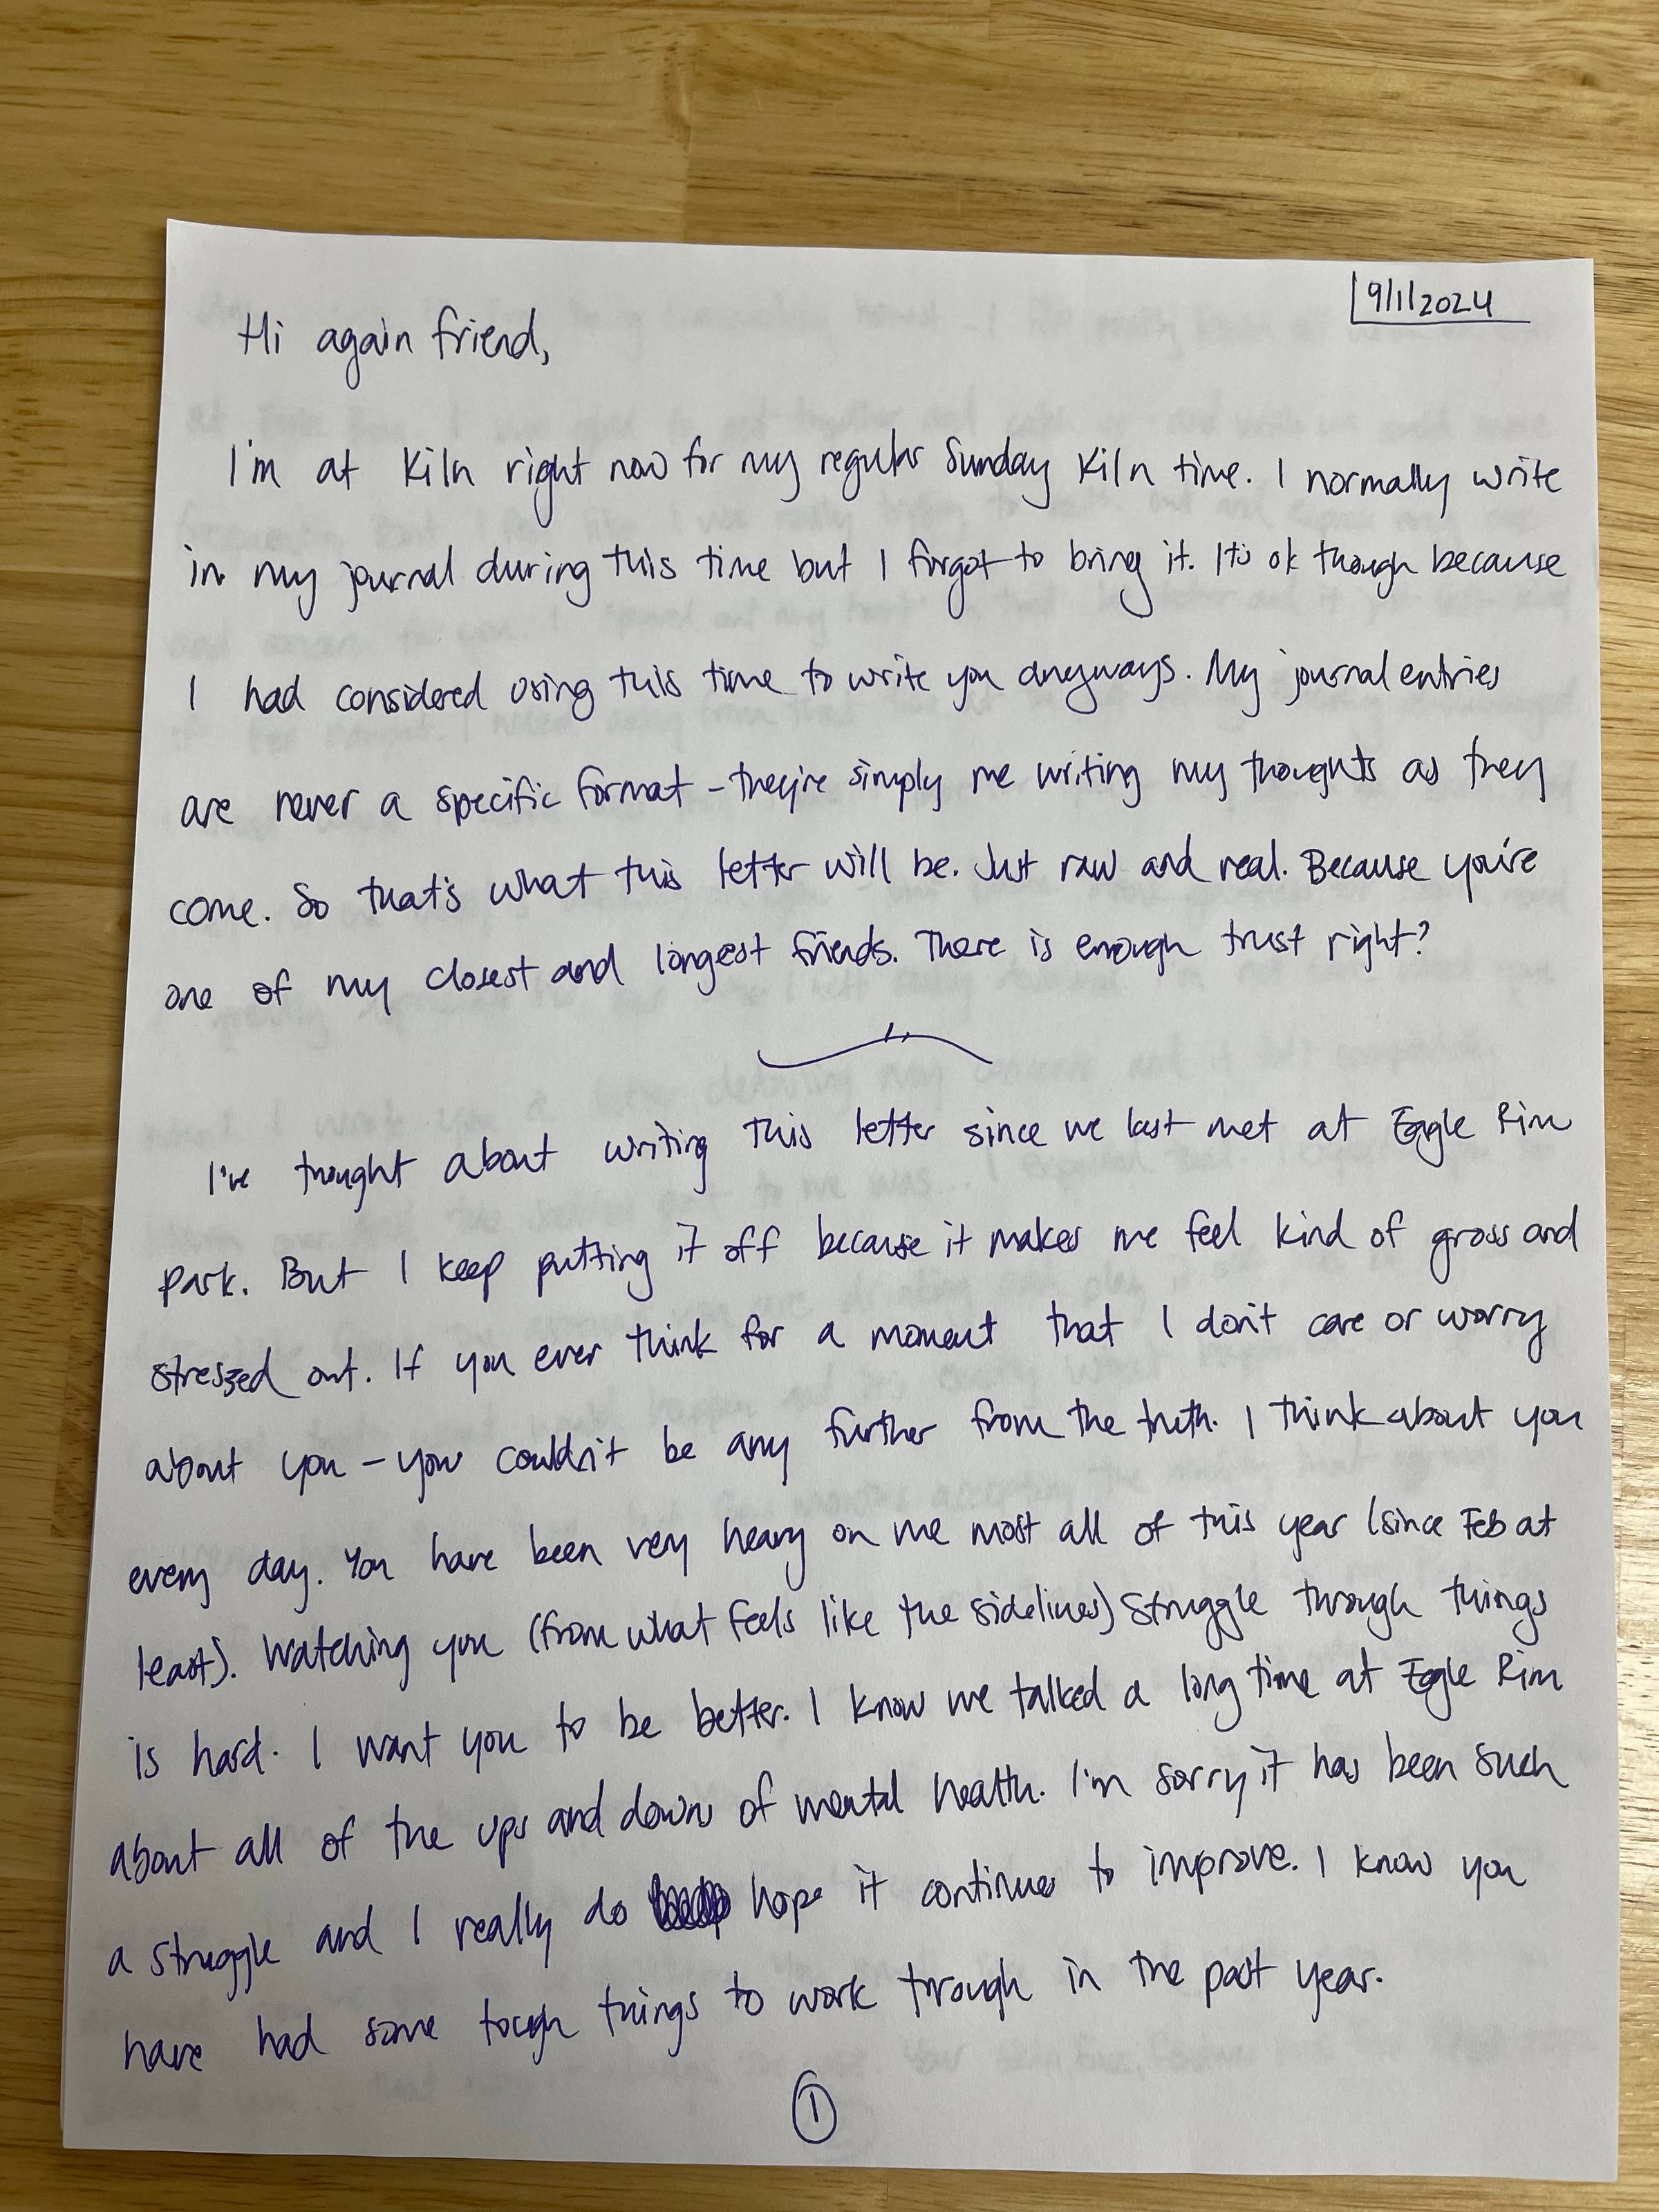 9/1/2024
Hi again friend,
I'm at Kiln right now for my regular Sunday Kiln time. I normally write
in my journal during this time but I forgot to bring it. It's ok though because
I had considered using this time to write you anyways. My journal entries
are never a specific format - they're simply me writing my thoughts as they
come. So that's what this letter will be. Just raw and real. Because you're
one of my closest and longest friends. There is enough trust right?
I've thought about writing this letter since we last met at Eagle Rim
Park. But I keep putting it off because it makes me feel kind of gross and
stressed out. If you ever think for a moment that I don't care or worry
about you - you couldn't be any further from the truth. I think about you
every day. You have been very heavy on me most all of this year (since Feb at
least). Watching you (from what feels like the sidelines) struggle through things
is hard. I want you to be better. I know we talked a long time at Eagle Rim
about all of the ups and downs of mental health. I'm sorry it has been such
a struggle and I really do hope it continues to improve. I know you
have had some tough things to work through in the past year.
1